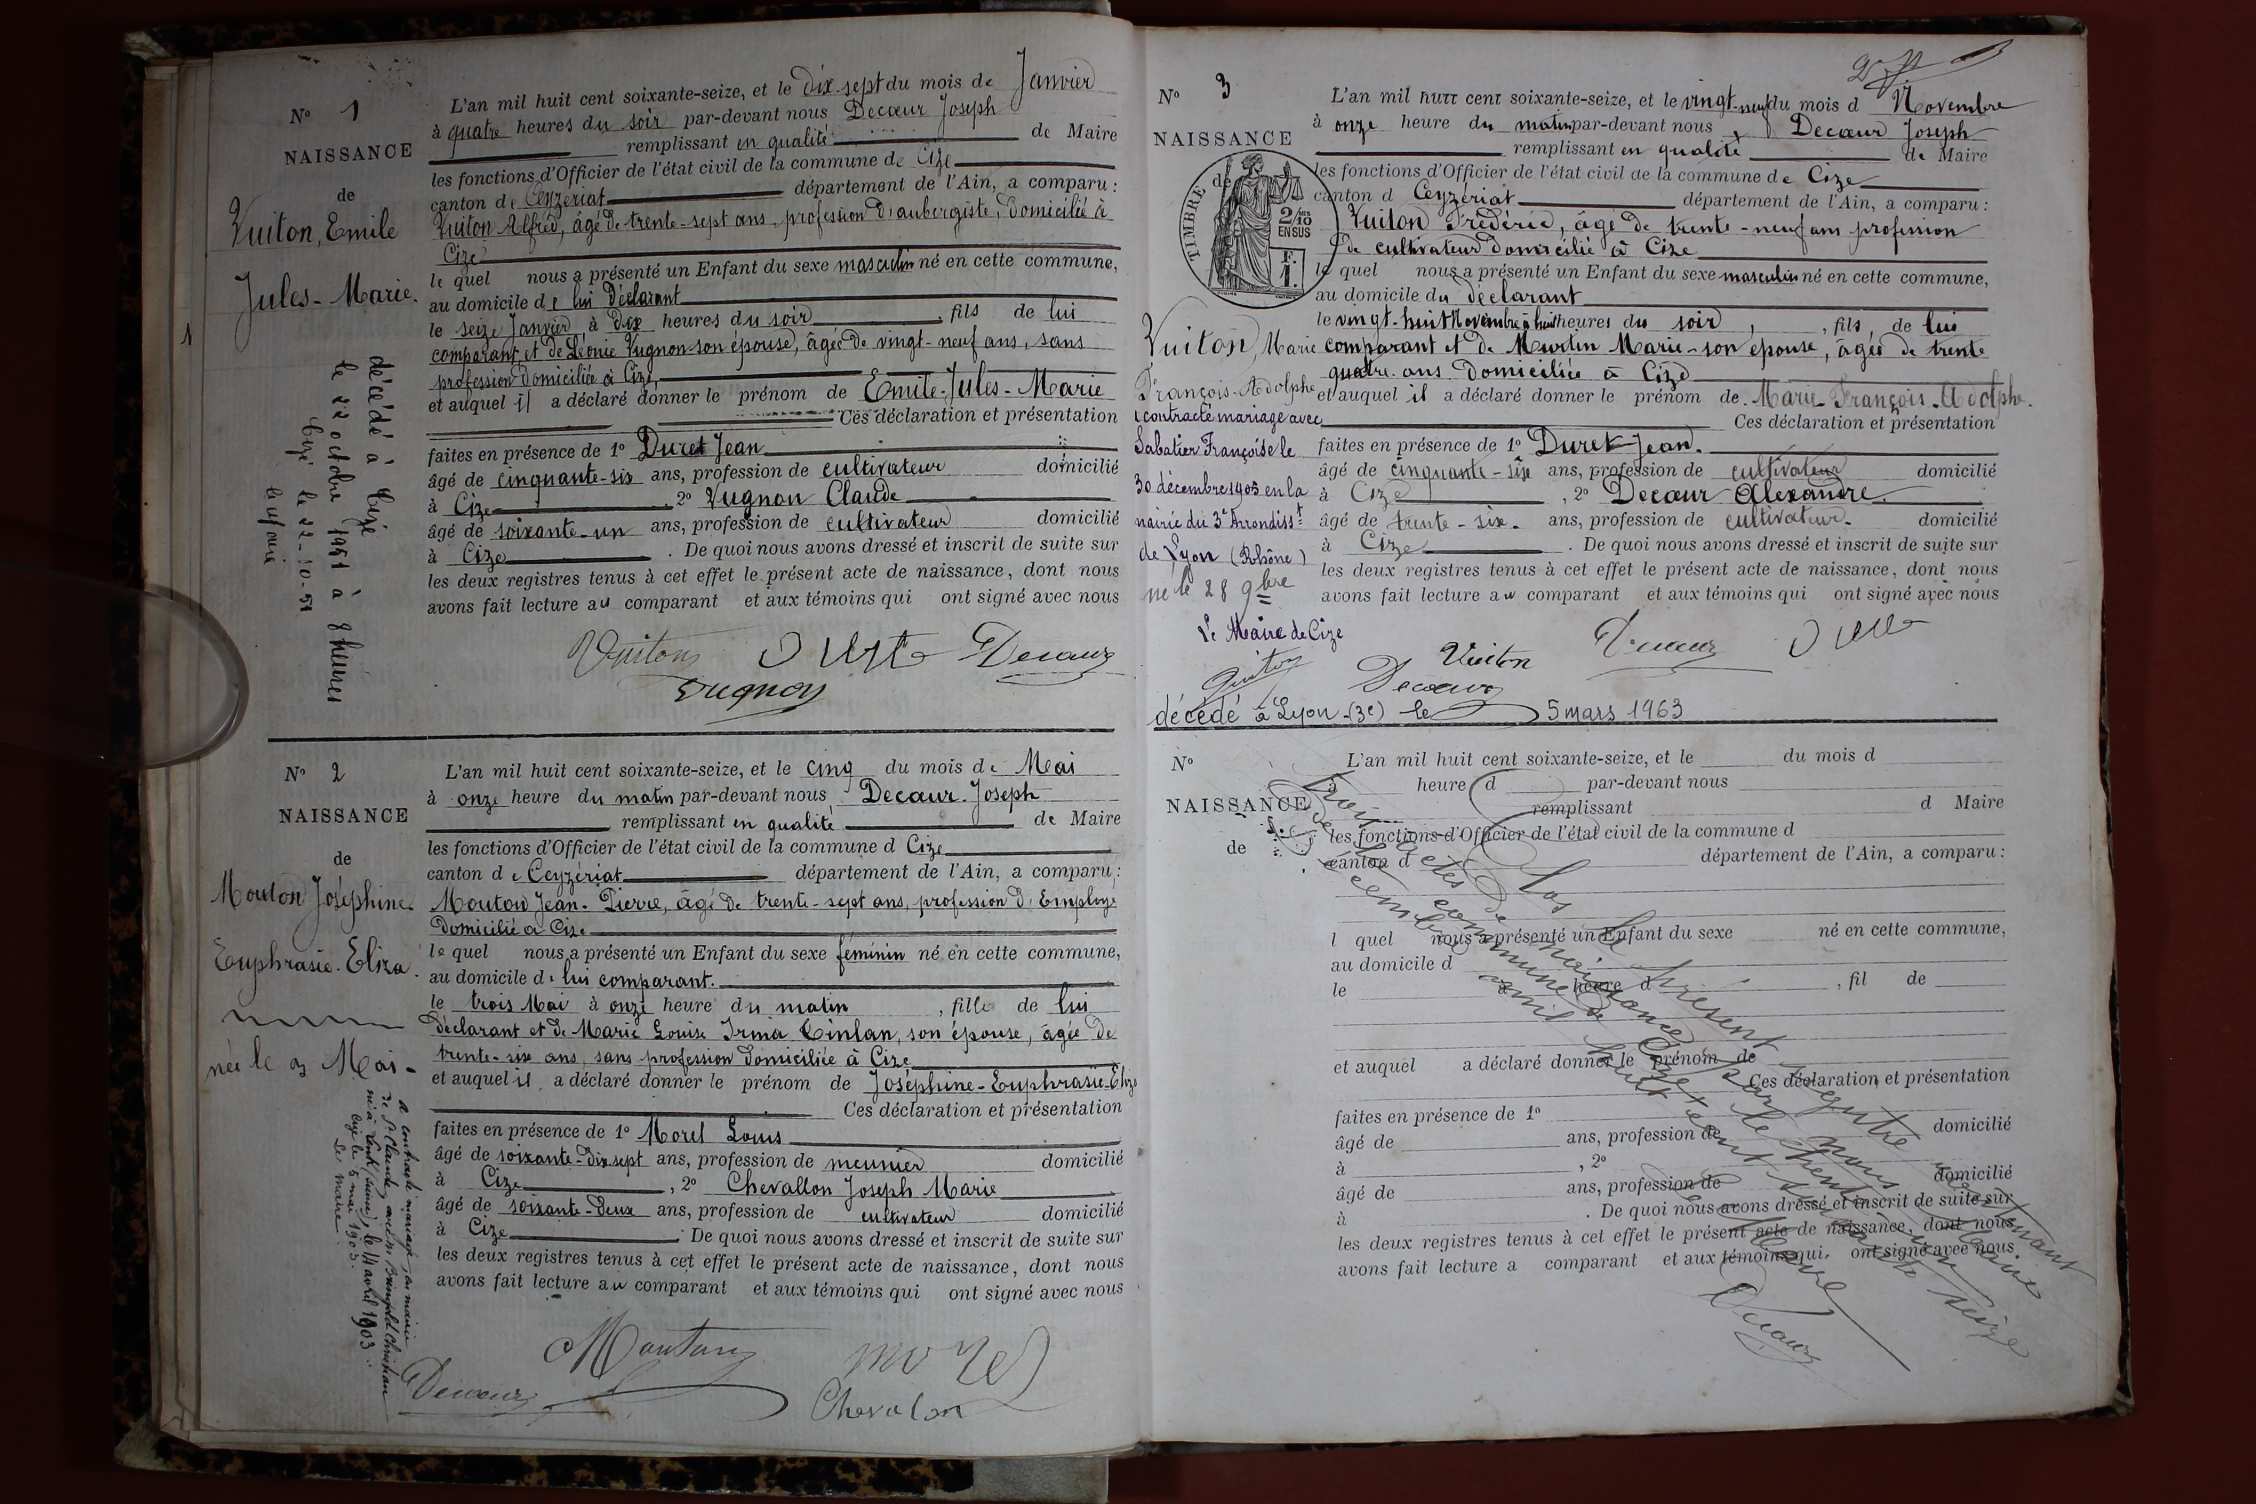 N° 1
NAISSANCE
de
Vuiton, Emile
Jules-Marie.
1
décédé à Cize
le 22 octobre 1951 à 8 heures
Cize le 22-10-51
L'an mil huit cent soixante-seize, et le dix-sept du mois de Janvier
à quatre heures du soir par-devant nous Decœur Joseph
remplissant en qualité de Maire
les fonctions d'Officier de l'état civil de la commune de Cize
canton de Ceyzériat département de l'Ain, a comparu :
Vuiton Alfred, âgé de trente-sept ans, profession d'aubergiste, domicilié à
Cize
le quel nous a présenté un Enfant du sexe masculin né en cette commune,
au domicile de lui Déclarant
le seize Janvier à dix heures du soir, fils de lui
comparant et de Léonie Vugnon son épouse, âgée de vingt-neuf ans, sans
profession domiciliée à Cize,
et auquel il a déclaré donner le prénom de Emile-Jules-Marie
Ces déclaration et présentation
faites en présence de 1° Duret Jean
âgé de cinquante-six ans, profession de cultivateur domicilié
à Cize, 2° Vugnon Claude
âgé de soixante-un ans, profession de cultivateur domicilié
à Cize. De quoi nous avons dressé et inscrit de suite sur
les deux registres tenus à cet effet le présent acte de naissance, dont nous
avons fait lecture au comparant et aux témoins qui ont signé avec nous
Vuiton Duret Decœur
Vugnon
N° 2
NAISSANCE
de
Mouton Joséphine
Euphrasie-Eliza.
née le 3 Mai-
a contracté mariage
le 14 avril 1903.
Cize le 6 mai 1903.
Le Maire
L'an mil huit cent soixante-seize, et le cinq du mois de Mai
à onze heure du matin par-devant nous Decœur Joseph
remplissant en qualité de Maire
les fonctions d'Officier de l'état civil de la commune d Cize
canton de Ceyzériat département de l'Ain, a comparu :
Mouton Jean-Pierre, âgé de trente-sept ans, profession d'Employé
Domicilié à Cize
le quel nous a présenté un Enfant du sexe féminin né en cette commune,
au domicile de lui comparant.
le trois Mai à onze heure du matin, fille de lui
déclarant et de Marie Louise Irma Cinlan, son épouse, âgée de
trente-six ans, sans profession domiciliée à Cize
et auquel il a déclaré donner le prénom de Joséphine-Euphrasie-Eliza
Ces déclaration et présentation
faites en présence de 1° Morel Louis
âgé de soixante-dix sept ans, profession de meunier domicilié
à Cize, 2° Chevallon Joseph Marie
âgé de soixante-deux ans, profession de cultivateur domicilié
à Cize. De quoi nous avons dressé et inscrit de suite sur
les deux registres tenus à cet effet le présent acte de naissance, dont nous
avons fait lecture au comparant et aux témoins qui ont signé avec nous
Mouton morel
Decœur Chevalon
N° 3
NAISSANCE
de
TIMBRE
2/10 EN SUS
F. 1.
Vuiton, Marie
François-Adolphe
contracté mariage avec
Sabatier Françoise le
30 décembre 1903 en la
mairie du 3e Arrondisst
de Lyon (Rhône)
né le 28 9bre
Le Maire de Cize
L'an mil huit cent soixante-seize, et le vingt-neuf du mois d Novembre
à onze heure du matin par-devant nous Decœur Joseph
remplissant en qualité de Maire
les fonctions d'Officier de l'état civil de la commune de Cize
canton d Ceyzériat département de l'Ain, a comparu :
Vuiton Frédéric, âgé de trente-neuf ans profession
de cultivateur domicilié à Cize
le quel nous a présenté un Enfant du sexe masculin né en cette commune,
au domicile du déclarant
le vingt-huit Novembre à huit heures du soir, fils, de lui
comparant et de Murtin Marie-son épouse, âgée de trente
quatre ans domiciliée à Cize
et auquel il a déclaré donner le prénom de Marie-François-Adolphe.
Ces déclaration et présentation
faites en présence de 1° Duret Jean.
âgé de cinquante-six ans, profession de cultivateur domicilié
à Cize, 2° Decœur Alexandre.
âgé de trente-six. ans, profession de cultivateur. domicilié
à Cize. De quoi nous avons dressé et inscrit de suite sur
les deux registres tenus à cet effet le présent acte de naissance, dont nous
avons fait lecture au comparant et aux témoins qui ont signé avec nous
Vuiton Decœur Duret
Vuiton Decœur
décédé à Lyon (3e) le 5 mars 1963
N°
NAISSANCE
de
L'an mil huit cent soixante-seize, et le du mois d
à heure d par-devant nous
remplissant d Maire
les fonctions d'Officier de l'état civil de la commune d
canton d département de l'Ain, a comparu :
l quel nous a présenté un Enfant du sexe né en cette commune,
au domicile d
le à heure d, fil de
et auquel a déclaré donner le prénom de
Ces déclaration et présentation
faites en présence de 1°
âgé de ans, profession de domicilié
à, 2°
âgé de ans, profession de domicilié
à. De quoi nous avons dressé et inscrit de suite sur
les deux registres tenus à cet effet le présent acte de naissance, dont nous
avons fait lecture a comparant et aux témoins qui ont signé avec nous
Clos le présent registre contenant
trois actes de naissance par nous Maire
de la commune de Cize le trente un
décembre mil huit cent soixante seize
Le Maire
Decœur